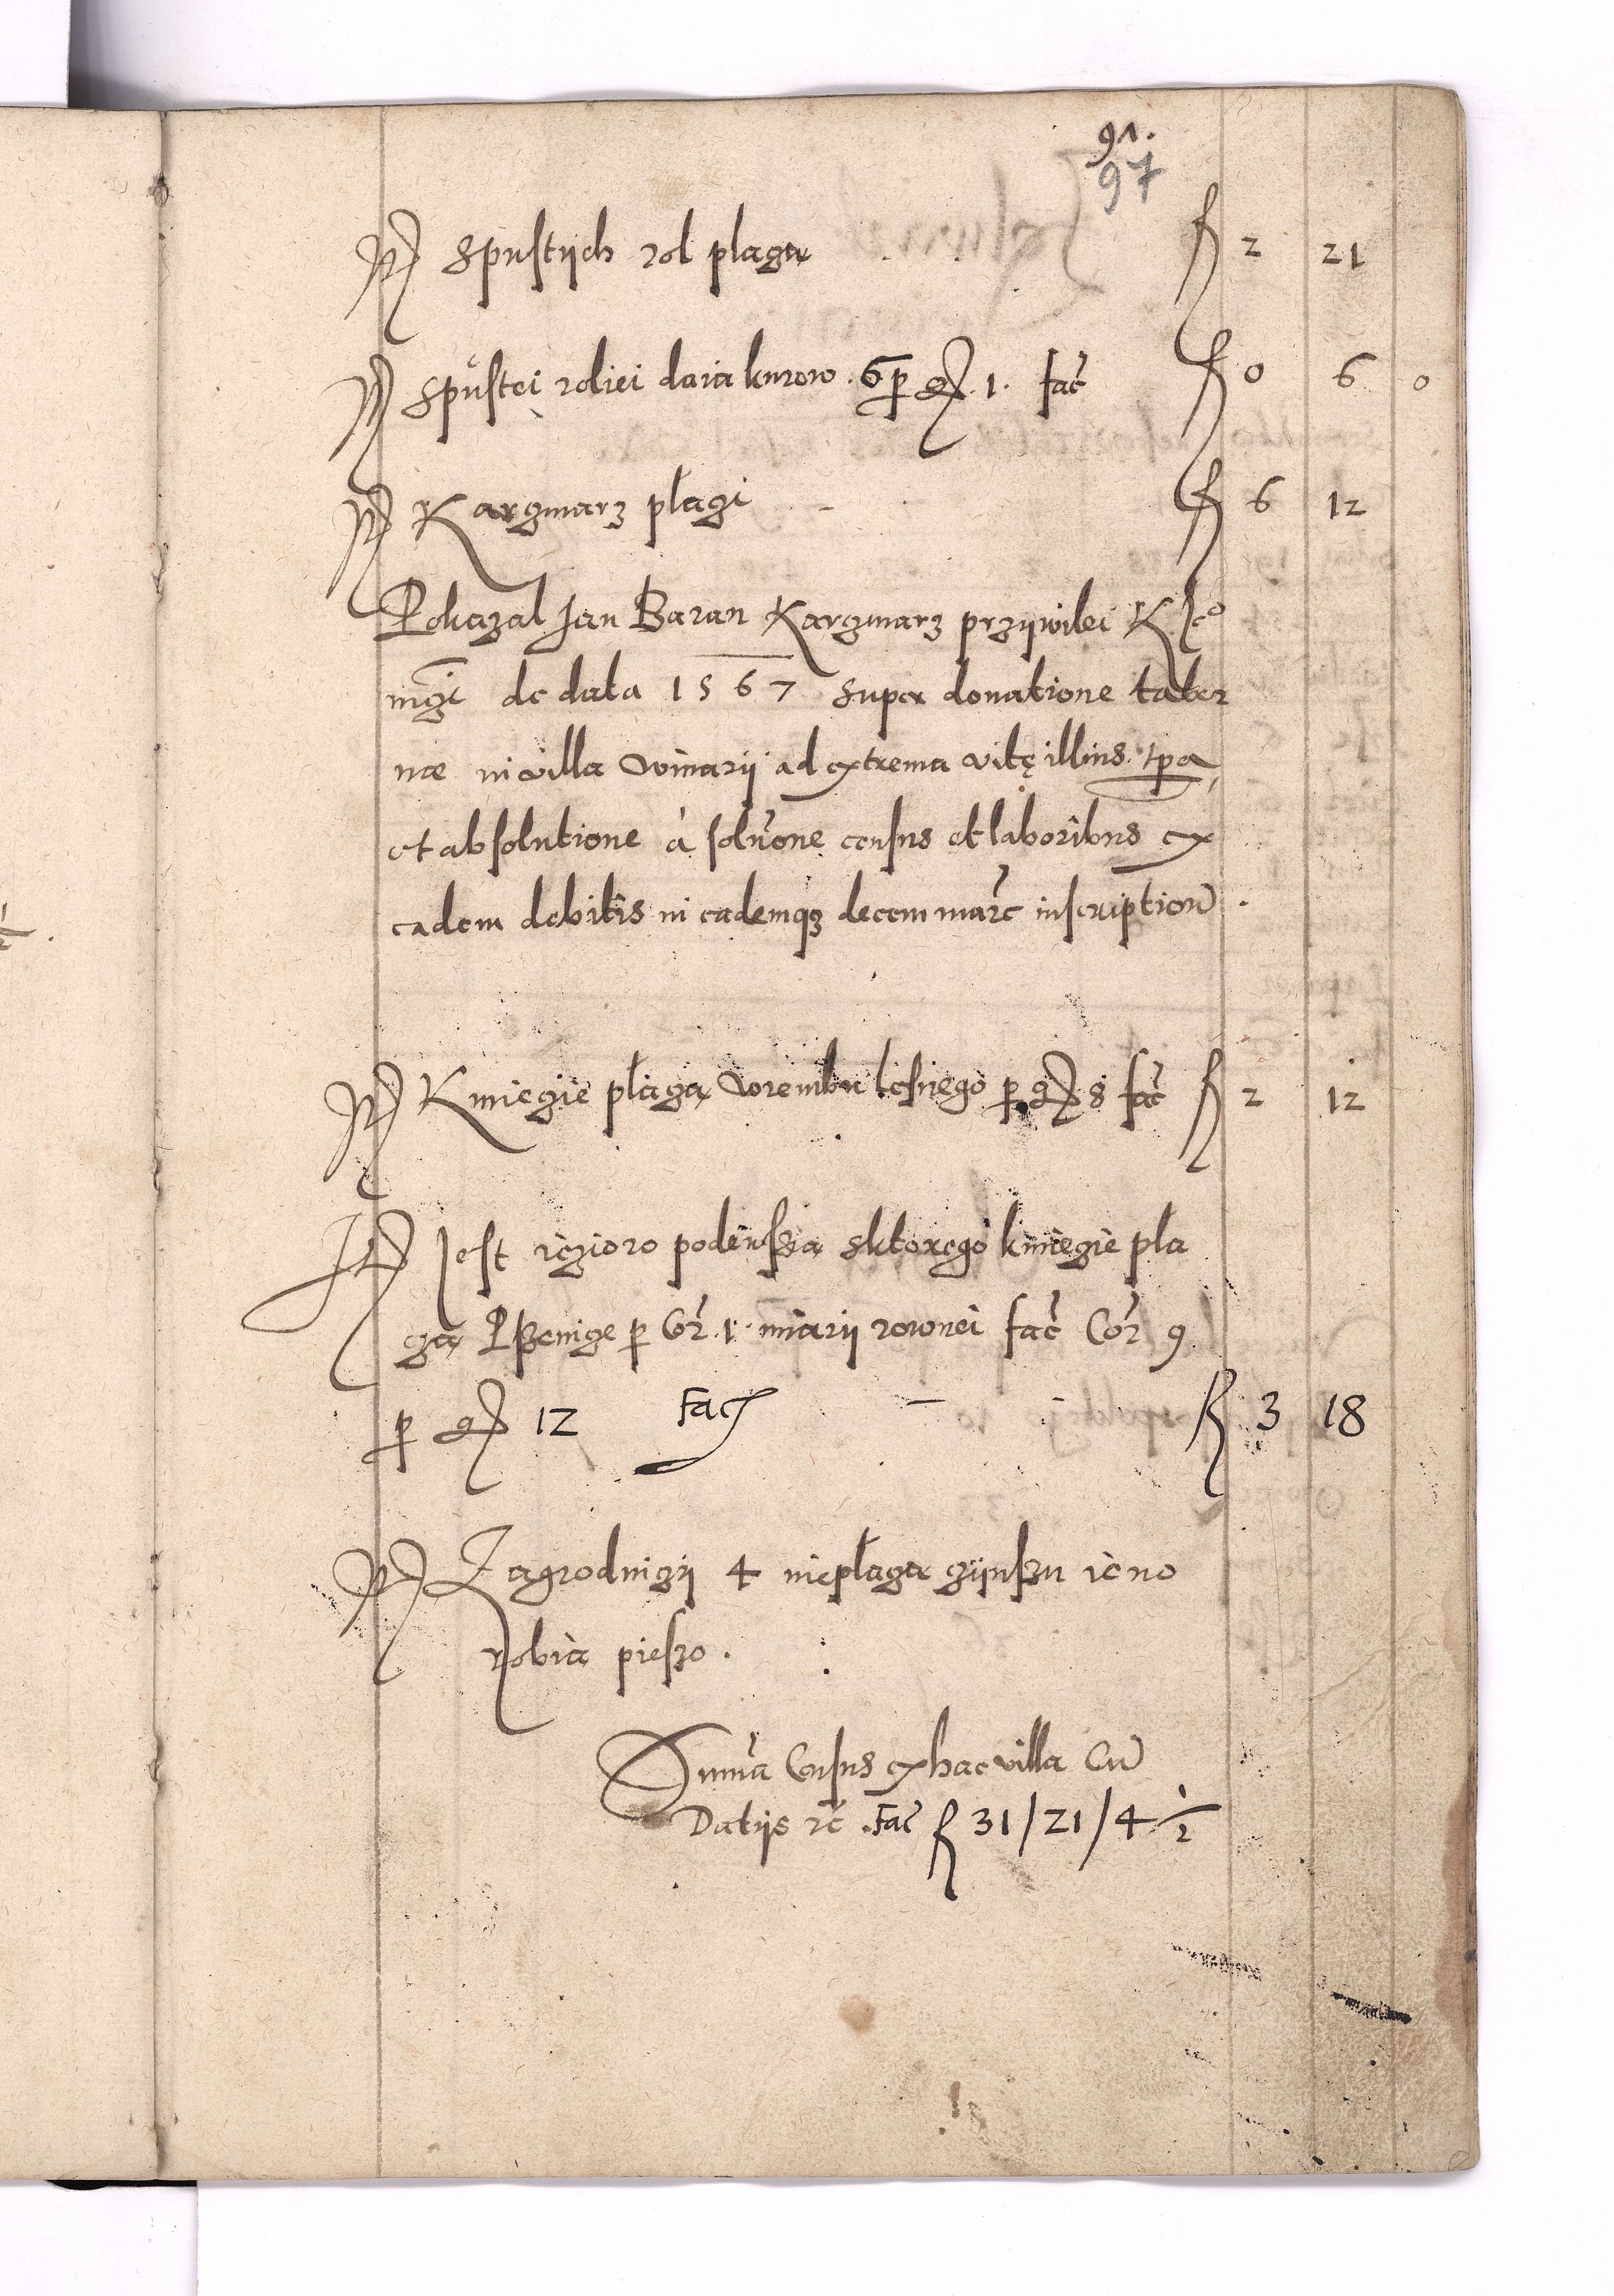 91.
97
It Spustych rol placza fl 2 21
It Spustei roliei daia kurow . 6 p gr . 1 . fac̃ fl 0 6 0
It Karczmarz płaczi fl 6 12
Pokazal Jan Baran Karczmarz przywilei K Jº
mczi de data 1567 super donatione taber
næ in villa Winary ad extrema vitę illius tpa
et absolutione à solũone census et laboribus ex
eadem debitis in eademqз decem marc̃ inscription̄ .
It Kmiecie płacza worembu lesnego p gr 8 fac̃ fl 2 12
It Jest iezioro podeusza sktorego kmiecie pla
cza Pszenice p Cor̃ . 1 . miary rownei fac̃ Cor̃ 9
p gr 12 Fac̃ fl 3 18
It Zagrodniczy 4 niepłacza czynszu ieno
robia pieszo .
Sum̃a Census ex hac villa Cũ
Datijs rc̃ . Fac̃ fl 31/21/4 1/2